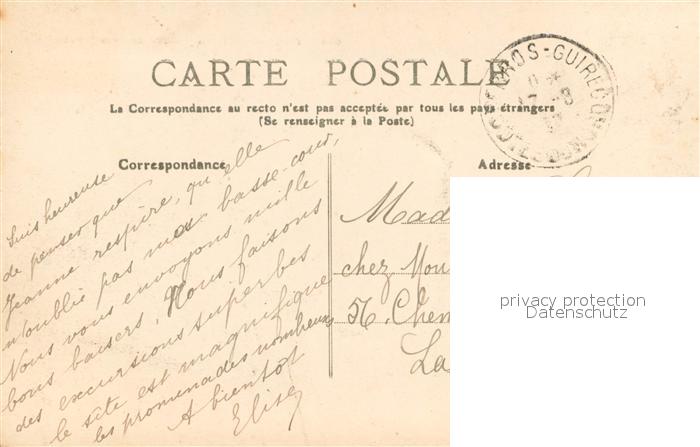 CARTE POSTALE
La Correspondance au recto n'est pas acceptée par tous les pays étrangers
(Se renseigner à la Poste)
Correspondance
Adresse
Suis heureuse
de penser que
Jeanne respire, qu'elle
n'oublie pas ma basse-cour,
Nous vous envoyons mille
bons baisers. Nous faisons
des excursions superbes
le site est magnifique
les promenades nombreuses
A bientôt
Elise
PERROS-GUIREC
COTES-DU-NORD
Mad
chez Mou
56, Chem
La
privacy protection
Datenschutz